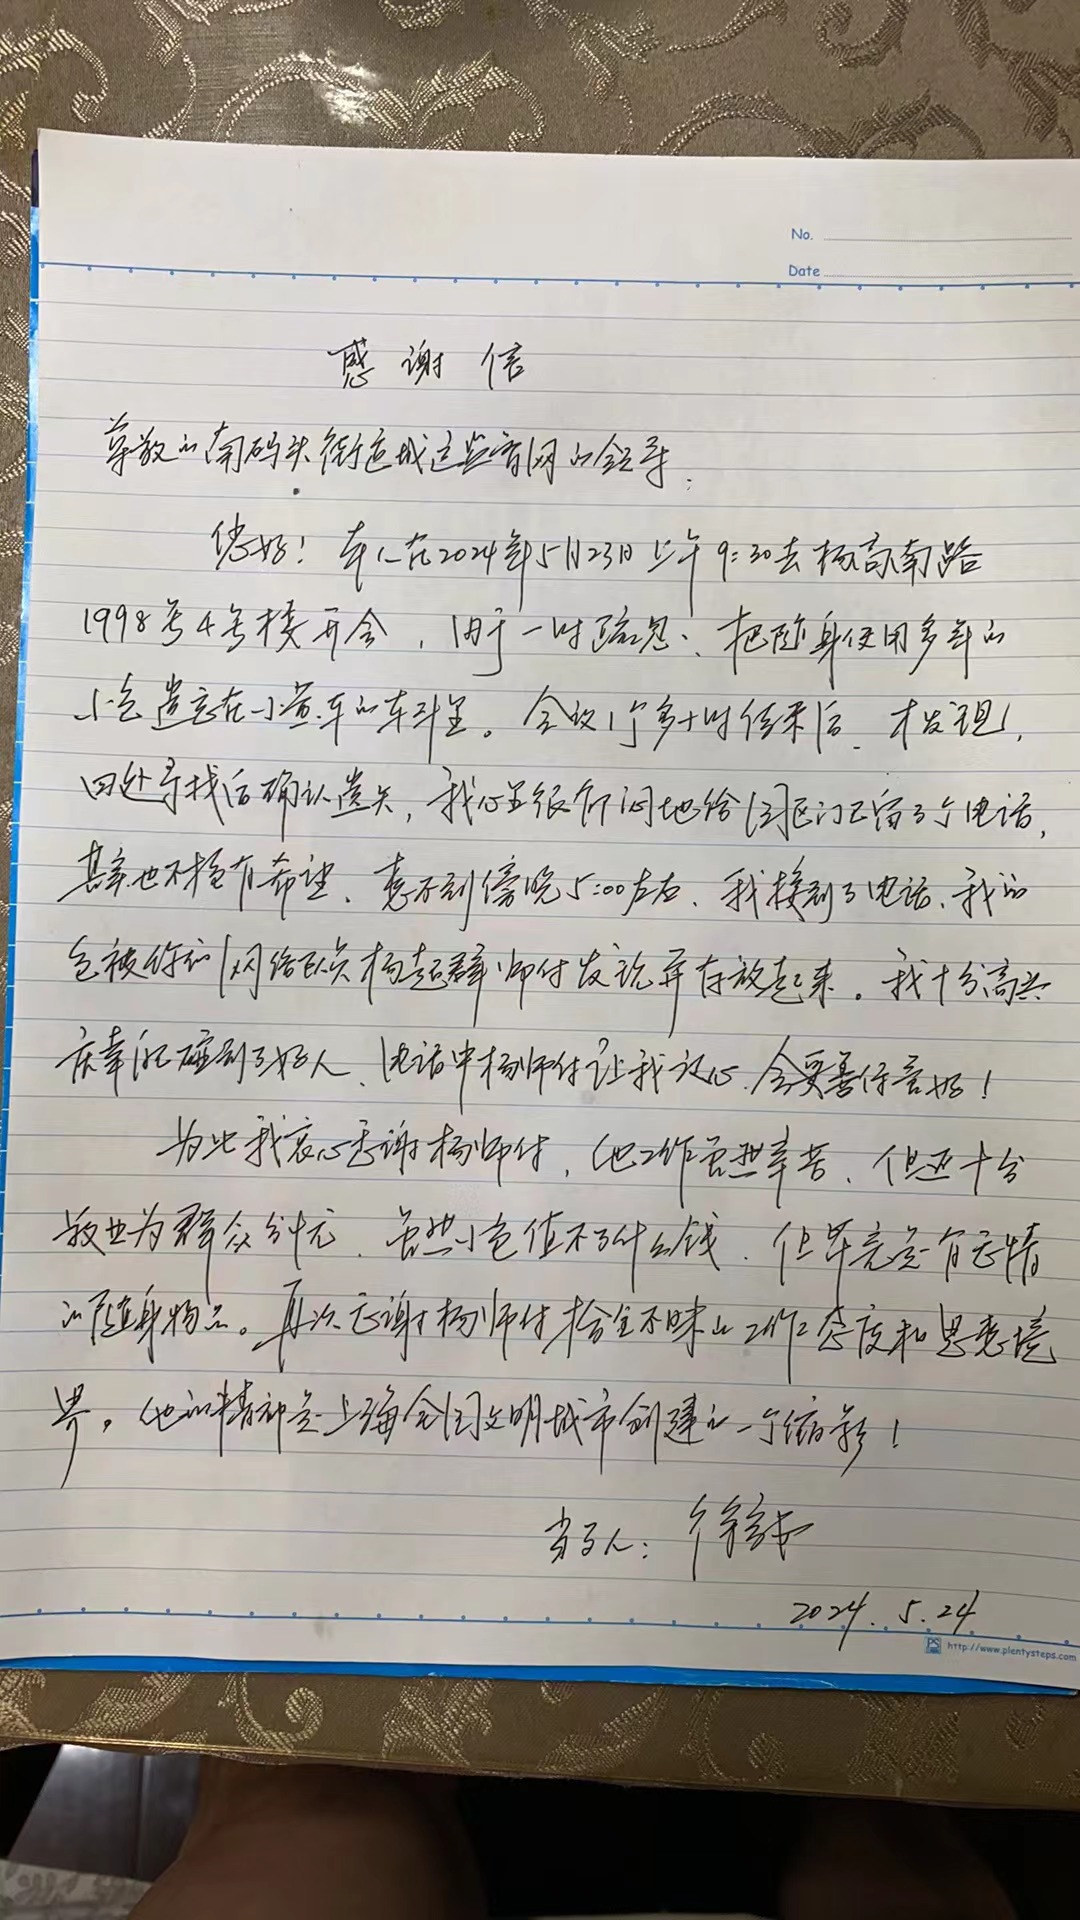 No.
Date
感谢信
尊敬的南码头街道城运监管网的领导：
您好！本人在2024年5月23日上午9:30去杨高南路
1998号4号楼开会，由于一时疏忽、把随身使用多年的
小包遗忘在小黄车的车斗里。会议1个多小时结束后、才发现，
四处寻找后确认遗失，我心里很郁闷地给园区门卫留了个电话，
其实也不抱有希望、想不到傍晚5:00左右、我接到了电话、我的
包被你们网格队员杨起群师付发现并存放起来。我十分高兴
庆幸自己碰到了好人、电话中杨师付让我放心、会妥善保管好！
为此我衷心感谢杨师付，他工作虽然辛苦、但还十分
敬业为群众分忧、虽然小包值不了什么钱、但毕竟是有感情
的随身物品。再次感谢杨师付拾金不昧的工作态度和思想境
界，他的精神是上海全国文明城市创建的一个缩影！
当事人：徐
2024.5.24
http://www.plentysteps.com